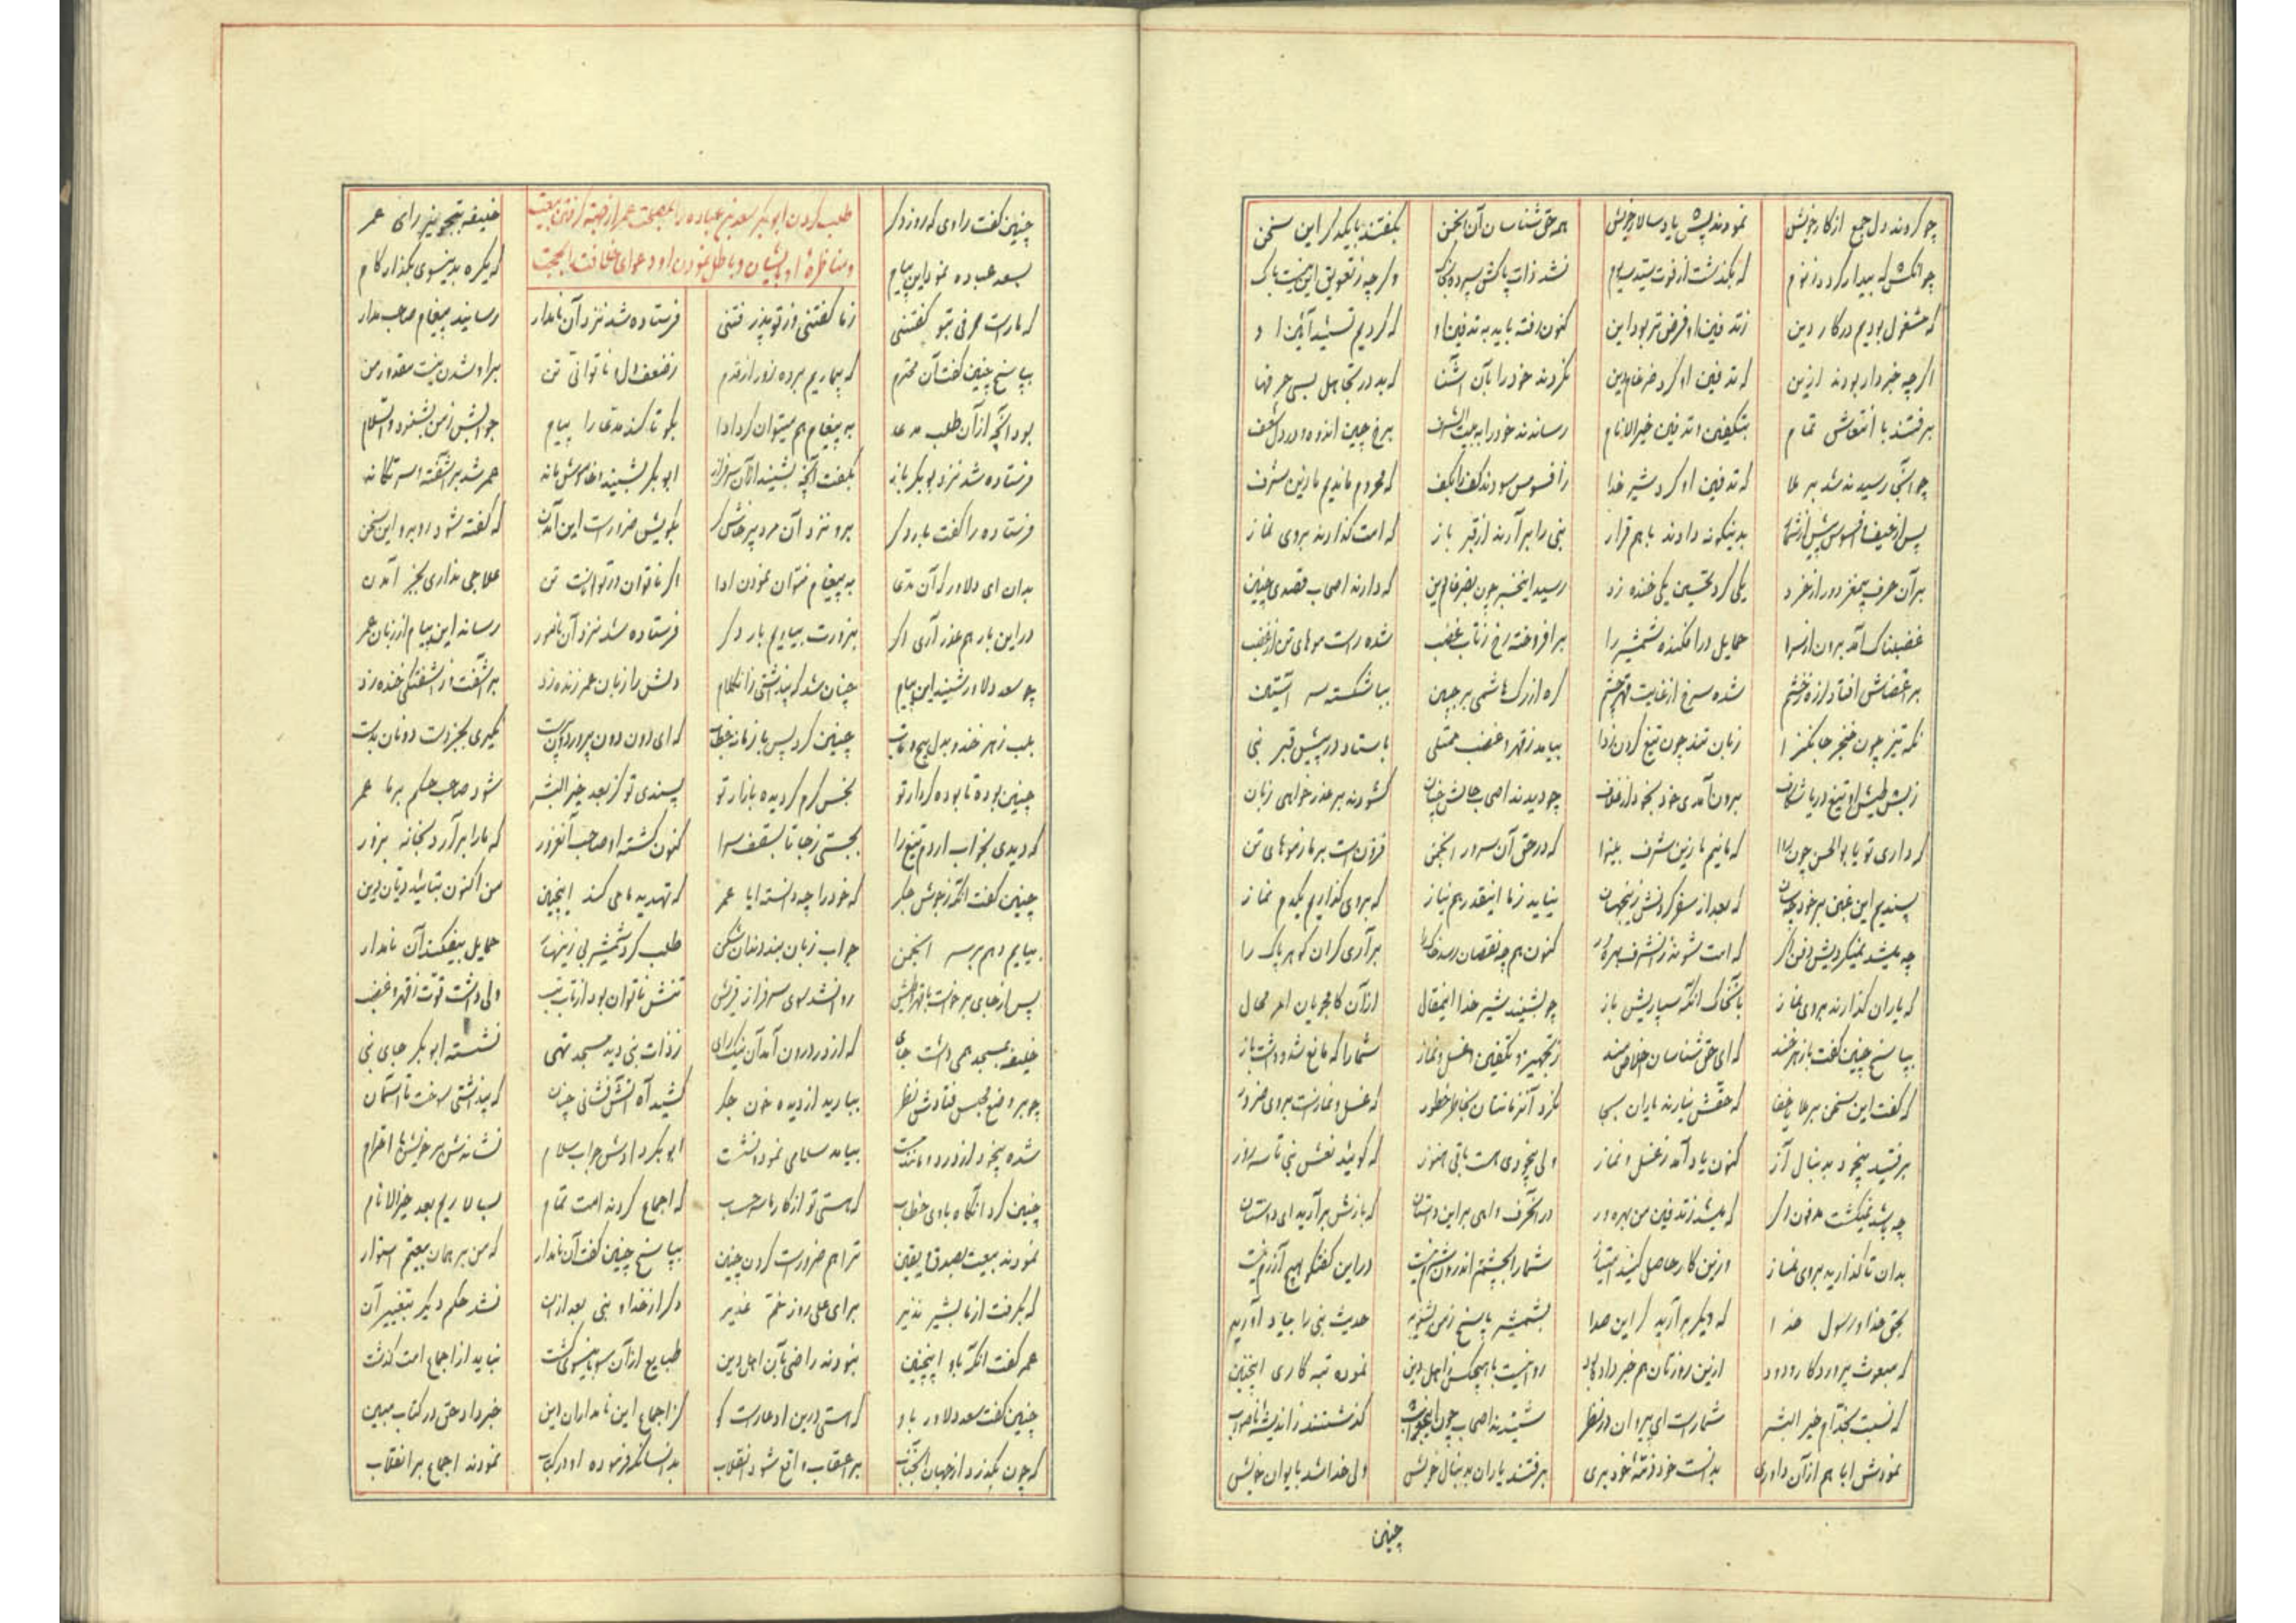 چو کردند دل جمع از کار خویش نمودند پس یاد سالار خویش همه حق شناسان آن انجمن بگفتند با یکدگر این سخن
که بگذشت از فوت سید سیوم نشد ذات پاکش سپرده بخاک وگرچه ز تعویق این نیست باک
که مشغول بودیم در کار دین ز تدفین او فرض تر بود این کنون رفته باید به تدفین او که کردیم تشیید آئین او
اگرچه خبردار بودند ازین که تدفین او کرد ضرغام دین نکردند خود را بآن آشنا که بد در تجاهل بسی حرفها
برفتند با انتعاش تمام بتکفین و تدفین خیرالانام رساندند خود را به بیت الشرف برخ چین اندوه و در دل شعف
چو آنجا رسیدند شد برملا که تدفین او کرد شیر خدا ز افسوس سودند کف را بکف که محروم ماندیم ما زین شرف
پس از حیف و افسوس بیش از شمار بدینگونه دادند با هم قرار نبی را برآرند از قبر باز که امت گذارند بروی نماز
بر آن حرف بیمغز دور از خرد یکی کرد تحسین یکی خنده زد رسید این خبر چون بضرغام دین که دارند اصحاب قصدی چنین
غضبناک آمد برون از سرا حمایل درافکنده شمشیر را برافروخته رخ ز تاب غضب شده راست موهای تن از غضب
بر اعضاش افتاد لرزه ز خشم شده سرخ از غایت قهر چشم گره از رگ هاشمی بر جبین بپا شکسته سه آستین
نگه تیز چون خنجر جانگزا زبان تند چون تیغ کردن ادا بیامد ز قهر و غضب ممتلی باستاد در پیش قبر نبی
ز بس طیش او تیغ دریا شکاف برون آمدی خود بخود از غلاف چو دیدند اصحاب حالش چنان گشودند بر عذرخواهی زبان
که داری تو یا بوالحسن چون روا که مانیم ما زین شرف بینوا که در حق آن سرور انجمن فزون است بر ما ز موهای تن
پسندیم این غبن بر خود چسان که بعد از سفر کردنش زین جهان نیاید ز ما اینقدر هم نیاز که بروی گذاریم یکدم نماز
چه میشد نمیکردیش دفن اگر که امت شوند زان شرف بهره ور کنون هم چه نقصان رسد خاک را برآری گر آن گوهر پاک را
که یاران گذارند بروی نماز باین خاک آنگه سپاریش باز چو بشنید شیر خدا این مقال از آن کامجویان امر محال
بپاسخ چنین گفت با زهرخند که ای حق شناسان اخلاص مند ز تجهیز و تکفین و غسل و نماز شما را که مانع شد و داشت باز
که گفت این سخن برملا یا خفا که حقش نیارند یاران بجا نکرد آنزمانتان بخاطر خطور که غسل و نمازست بروی ضرور
برفتید بیخود بدنبال آز کنون یاد آمد ز غسل و نماز ولی بیخودی هست باقی هنوز که گوئید نعش نبی تا سه روز
چه میشد نمیگشت مدفون اگر که میشد ز تدفین من بهره ور که بازش برآرید ای دوستان
بدان تا گذارید بروی نماز وزین کار حاصل کنید امتیاز شما را بچشم اندرون شرم نیست در این گفتگو هیچ آزرم نیست
بحق خدا و رسول خدا که دیگر برآرید گر این صدا بشمشیر پاسخ ز من بشنوید حدیث نبی را بیاد آورید
که مبعوث پروردگار ودود ازین روزتان هم خبر داده بود روا نیست با هیچکس ز اهل دین نموده تبه کاری اینچنین
که نسبت بخدام خیرالبشر شما راست ای پیروان در نظر شنیدند اصحاب چون این جواب گذشتند ز اندیشه ناصواب
نمودش ابا هم از آن داوری بدانست خود ذمه خود بری برفتند یاران بدنبال خویش ولی خدا شد بایوان خویش
چنین
چنین گفت راوی که روز دگر طلب کردن ابوبکر سعد بن عباده را بمصلحت عمر از جهته گرفتن بیعت خلیفه بتجویز رای عمر
بسعد عباده نمود این پیام و مناظره او بایشان و باطل نمودن او دعوای خلافت ابحجت که یکره بدینسوی بگذار گام
که ما راست حرفی بتو گفتنی ز ما گفتنی وز تو پذرفتنی فرستاده شد نزد آن نامدار رسانید پیغام صاحب مدار
بپاسخ چنین گفت آن محترم که بیماریم برده زور از قدم ز ضعف دل و ناتوانی تن براه شدن نیست مقدور من
بود آنچه از آن طلب مدعا به پیغام هم میتوان کرد ادا بگو تا کند مدعا را پیام جوابش ز من بشنود والسلام
فرستاده شد نزد بوبکر باز بگفت آنچه بشنید از آن سرفراز ابوبکر بشنید و خاموش ماند عمر شد برآشفته
فرستاده را گفت بار دگر برو نزد آن مرد پرخاشگر بگویش ضرورست این آمدن که گفته شود روبرو این سخن
بدان ای دلاور که آن مدعا به پیغام نتوان نمودن ادا اگر ناتوان ور تواناست تن علاجی نداری بجز آمدن
در این بار هم عذر آری اگر بزورت بیاریم بار دگر فرستاده شد نزد آن نامور رساند این پیام از زبان عمر
چو سعد دلاور شنید این پیام چنان شد که پنداشتی زان کلام دلش را زبان عمر زنده زد برآشفت وز آشفتگی خنده زد
بلب زهرخند و بدل پیچ و تاب چنین کرد پس با زمانه خطاب که ای دون دون پرور نگیری بجز دست دونان بدست
چنین بوده تا بوده کردار تو بخس گرم گردیده بازار تو پسندی تو کز بعد خیرالبشر شود صاحب حکم بر ما عمر
که دیدی بخواب ار دم تیغ را بجستی ز جا تا بسقف سرا کنون گشته او صاحب آنقدر که ما را برآرد ز خانه بزور
چنین گفت آنگه ز جوش جگر که خود را چه دانسته ایا عمر که تهدید ما می کند اینچنین من اکنون بتائید دیان دین
بیایم دهم بر سر انجمن جواب زبان بند دندان شکن طلب کرد شمشیر بی زینهار حمایل بیفکند آن نامدار
پس از جای برخاست با قهر و طیش روان شد سوی سرفراز قریش تنش ناتوان بود از تاب تب ولی داشت قوت ز قهر و غضب
خلیفه بمسجد همی داشت جای که از در درون آمد آن نیک رای ز ذات نبی دید مسجد تهی نشسته ابوبکر جای نبی
چو بر وضع مجلس فتادش نظر ببارید از دیده خون جگر کشید آه آتش فشانی چنان که پنداشتی سوخت تا آسمان
شده بیخود از درد بیامد سلامی نمود و نشست ابوبکر دادش جواب سلام نشاندش بر خویش با احترام
چنین کرد آنگاه باوی خطاب که هستی تو از کار ما حسب که اجماع کردند امت تمام بسالاریم بعد خیرالانام
نمودند بیعت بصدق و یقین ترا هم ضرورست کردن چنین بپاسخ چنین گفت آن نامدار که من بر همان بیعتم استوار
که بگرفت از ما بشیر نذیر برای علی روز خم غدیر دگر از خدا و نبی بعد از آن نشد حکم دیگر بتغییر آن
عمر گفت آنگه باو اینچنین نبودند راضی بآن اهل دین طبایع از آن سو باینسوی گشت نباید از اجماع امت گذشت
چنین گفت سعد دلاور باو که هستی درین ادعا راست گو کز اجماع این نامداران دین خبر داد حق در کتاب مبین
که چون بگذرد از جهان آنجناب بر اعقاب واقع شود انقلاب بدانسانکه فرموده او در کتاب نمودند اجماع بر انقلاب